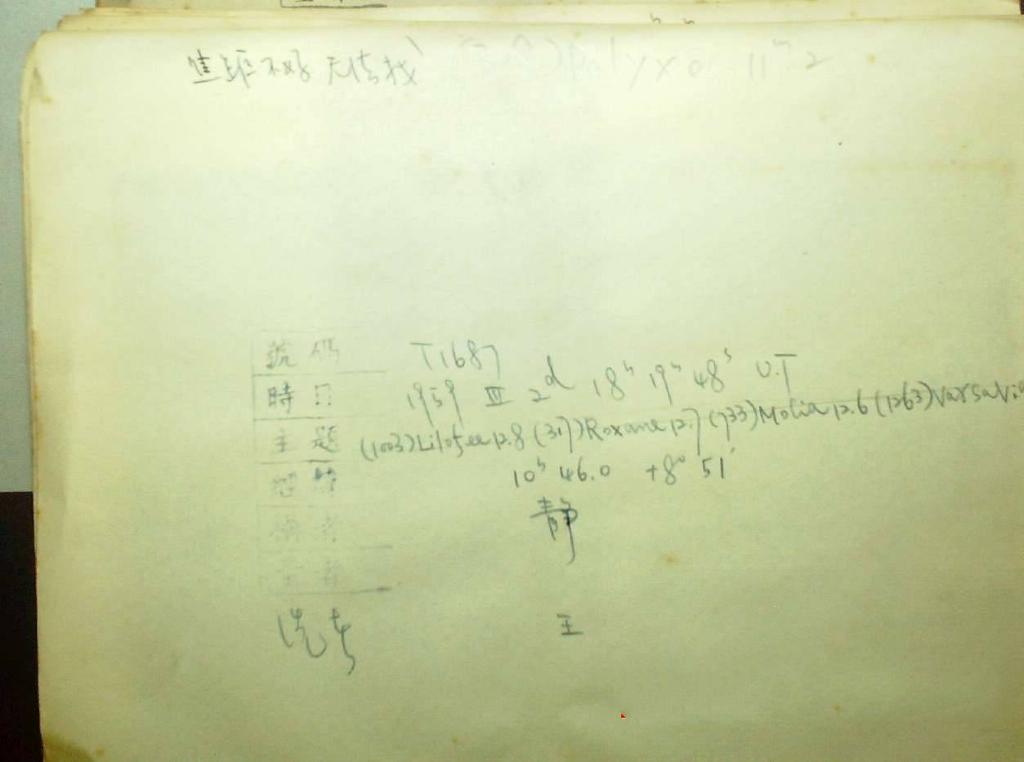 焦距不好 无法找
11ᵐ2
號碼 T1687
時日 1959 III 2ᵈ 18ʰ 19ᵐ 48ˢ U.T
主題 (1003)Lilofee 12.8 (317)Roxane 12.7 (733)Mocia 12.6 (1263)Varsavia
10ʰ 46.0 +8° 51′
静
洗者 王